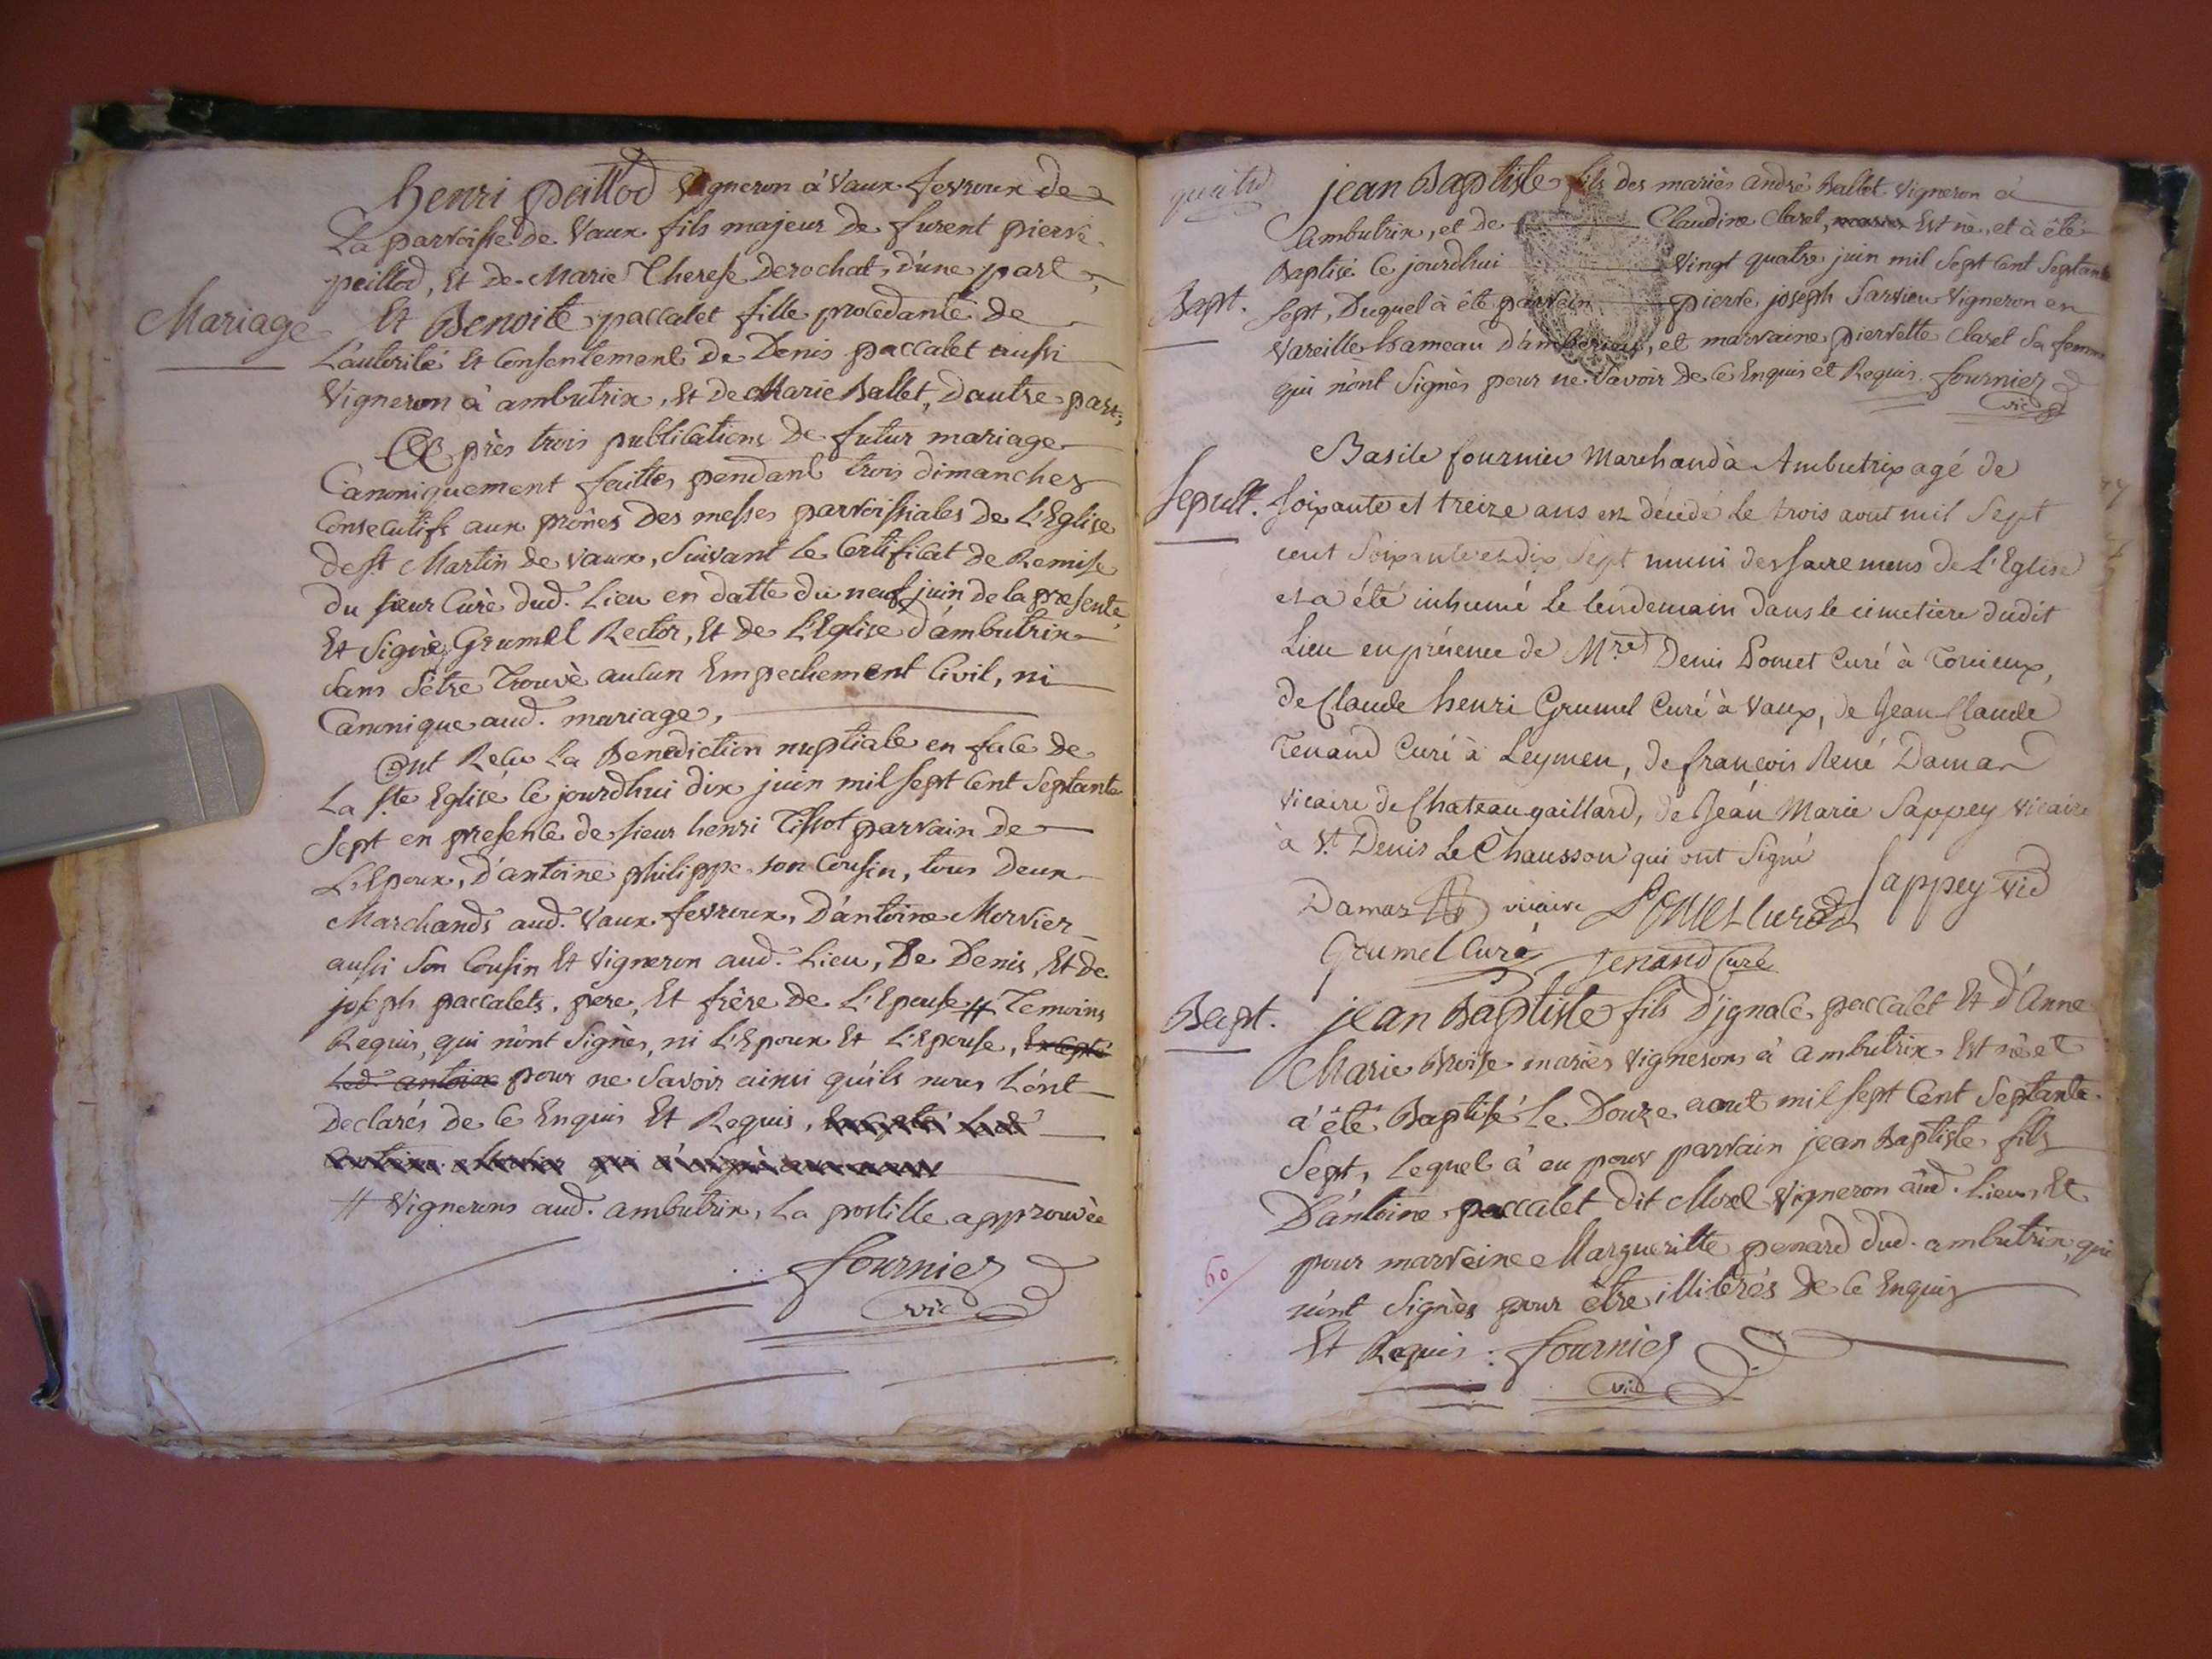 henri peillod Vigneron à Vaux fevroux de
La parroisse de Vaux fils majeur de furent pierre
peillod, Et de Marie Therese Derochat, d'une part,
Mariage
Et Benoite paccalet fille procedante de
L'autorité Et Consentement de Denis paccalet aussi
Vigneron à ambutrix, Et de Marie Ballet, Dautre part;
Après trois publications de futur mariage
Canoniquement faittes pendant trois dimanches
Consecutifs aux prônes des messes parroissiales de L'Eglise
de st Martin de Vaux, Suivant le Certificat de Remise
du sieur Curè dud. Lieu en datte du neuf juin de la presente,
Et Signè Grumel Rector, Et de L'Eglise d'ambutrix
Sans s'être Trouvè aucun Empechement Civil, ni
Canonique aud. mariage,
Ont Recu La Benediction nuptiale en face de
La ste Eglise ce jourdhui dix juin mil sept Cent Septante
Sept en presence de sieur henri Tissot parrain de
L'Epoux, D'antoine philippe son Cousin, tous deux
Marchands aud. Vaux fevroux, D'antoine Morvier
aussi Son Cousin Et Vigneron aud. Lieu, De Denis, Et de
joseph paccalets, pere, Et frère de L'Epouse # Temoins
Requis, qui n'ont Signès, ni L'Epoux Et L'Epouse, Excepté
Led. antoine pour ne Savoir ainsi qu'ils nous L'ont
Declarés de ce Enquis Et Requis,
# Vignerons aud. ambutrix, La postille approuvèe
fournier
vic
quatre
jean Baptiste fils des mariès andrè Ballet Vigneron à
Ambutrix, et de Claudine Claret, Est nè, et à étè
Baptisé ce jourdhui Vingt quatre juin mil Sept Cent Septante
Bapt.
Sept, Duquel à étè parrein pierre joseph Sarvieu Vigneron en
Vareille hameau D'amberieux, et marraine pierrette Claret Sa femme
qui n'ont Signès pour ne Savoir De ce Enquis et Requis. fournier
vic
Basile fournier Marchand à Ambutrix agé de
Sepult.
soixante et treize ans est décédé le trois aout mil Sept
cent Soixante et dix Sept muni des sacremens de L'Eglise
et a été inhumé le lendemain dans le cimetiere dudit
Lieu en présence de Mre Denis Pomet Curé à Torcieux,
de Claude henri Grumel Curé à Vaux, de Jean Claude
Tenand Curé à Leymen, de françois René Damas
vicaire de Chateaugaillard, de Jean Marie Sappey vicaire
à St Denis Le Chausson qui ont Signé
Damas vicaire Pomet curé Sappey vic
Grumel Curé Tenand Curé
Bapt.
jean Baptiste fils D'jgnace paccalet Et d'Anne
Marie mariès Vignerons à Ambutrix Est nè et
à été Baptisé Le Douze aout mil sept Cent Septante
Sept, Lequel à eu pour parrain jean Baptiste fils
D'antoine paccalet dit Morel Vigneron aud. Lieu, Et
60
pour marreine Margueritte penard dud. ambutrix, qui
n'ont Signès pour être illiterés De ce Enquis
Et Requis : fournier
vic